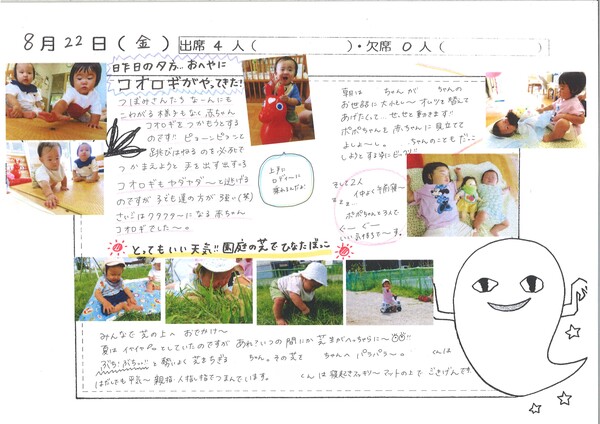 8月22日(金)
出席 4 人( )・欠席 0 人( )
昨日の夕方…おへやに
コオロギがやってきた!
つぼみさんたち なーんにも
こわがる様子もなく 赤ちゃん
コオロギをつかもうとする
のです!! ピョーンピョーンと
跳びはねるのを必死で
つかまえようと 手を出す出す
コオロギもヤダヤダ〜と逃げる
のですが 子ども達の方が 強い(笑)
さいごはクタクタ〜になる 赤ちゃん
コオロギでした〜。
上手に
ロディーに
乗れるんだよ
朝は ちゃんが ちゃんの
お世話に大忙し〜
あげたり して… せっせと動きます!!
ポポちゃんを赤ちゃんに見立てて
よしよ〜し。 ちゃんのことも
そして2人
仲よく午前寝〜
ポポちゃんと3人で
ぐー ぐー
いい気持ちで〜す。
とってもいい天気!! 園庭の芝でひなたぼっこ
みんなで 芝の上へ おでかけ〜
夏は イヤイヤ していたのですが あれ?いつの間にか 芝生がへっちゃらに〜!!
ぶち・ぶちっ!! と 勢いよく 芝をちぎる ちゃん。その芝を ちゃんへ パラパラ〜。 くんは
はだしでも平気〜 親指・人指し指でつまんでいます。 くんは 寝起きでスッキリ〜 マットの上で ごきげんです